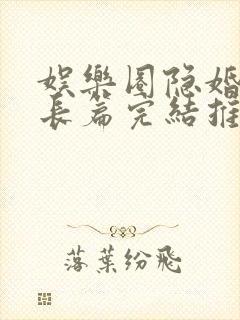 娱樂圈隐婚
長篇完結推
落葉纷飛